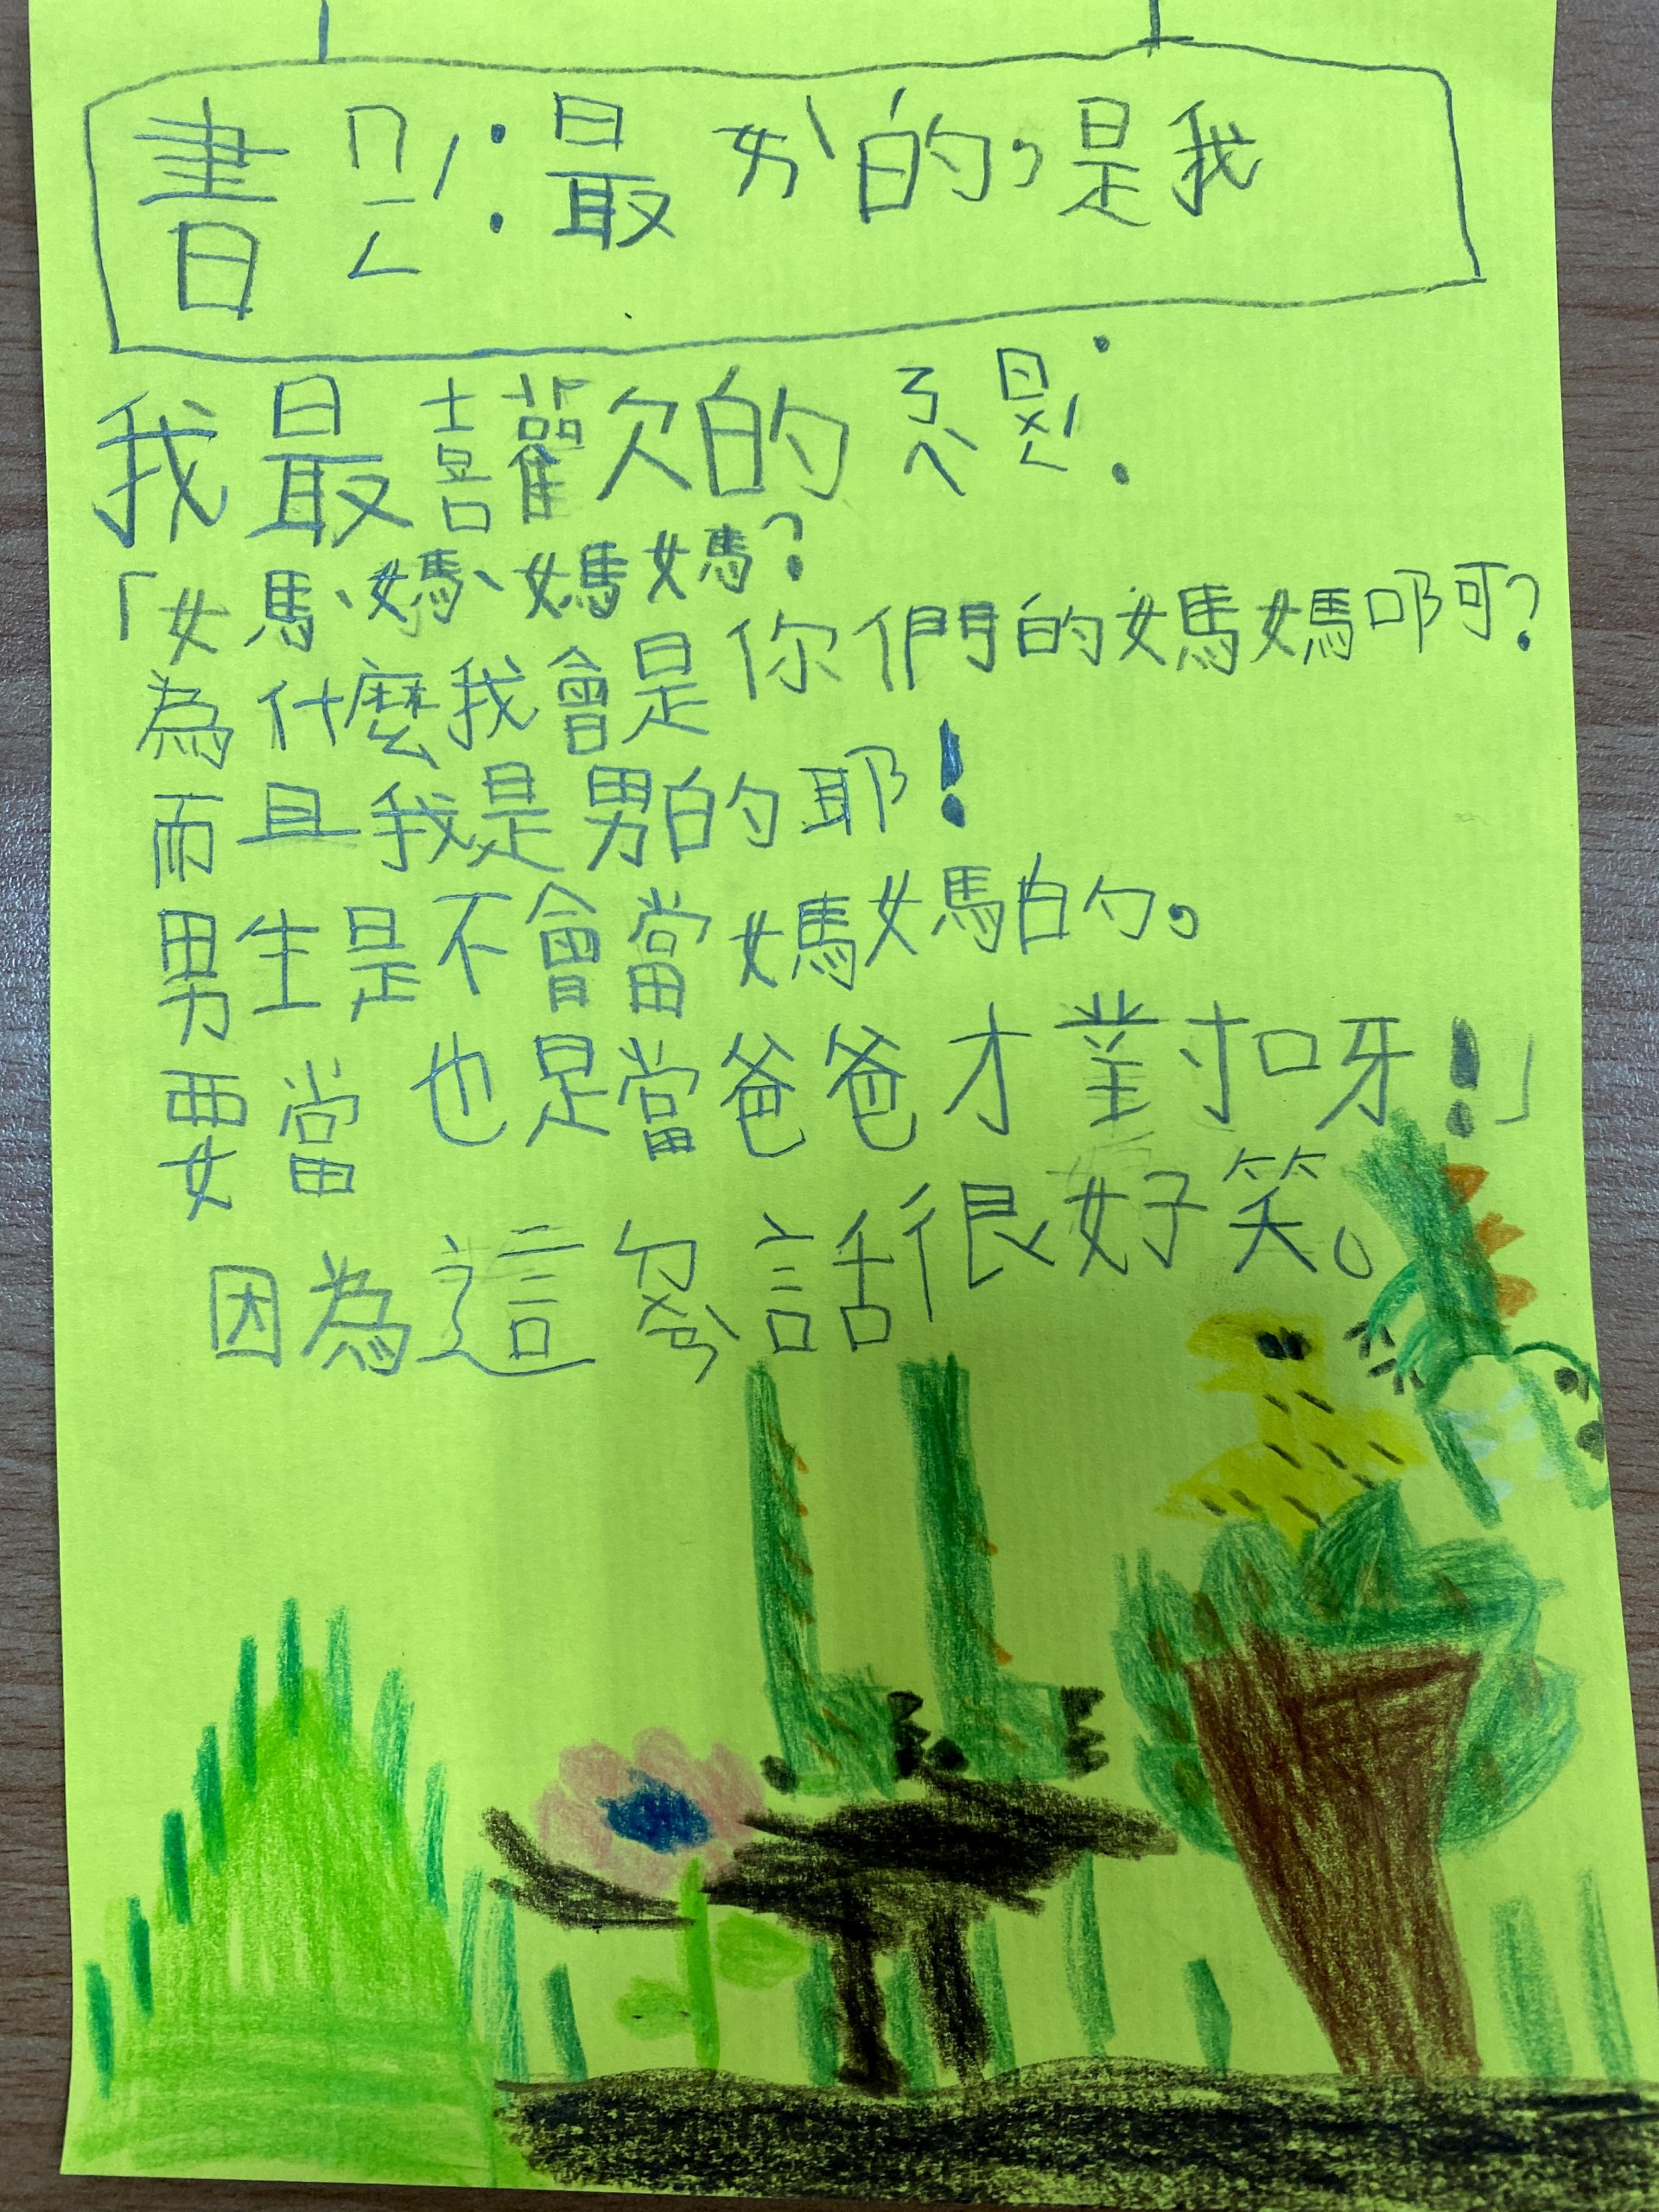 書ㄇㄧㄥˊ：最ㄞˋ的，是我
我最喜歡的ㄋㄟˋㄖㄨㄥˊ：
「媽、媽、媽媽？
為什麼我會是你們的媽媽啊？
而且我是男的耶！
男生是不會當媽媽的，
要當也是當爸爸才對呀！」
因為這ㄉㄨㄢˋ話很好笑。